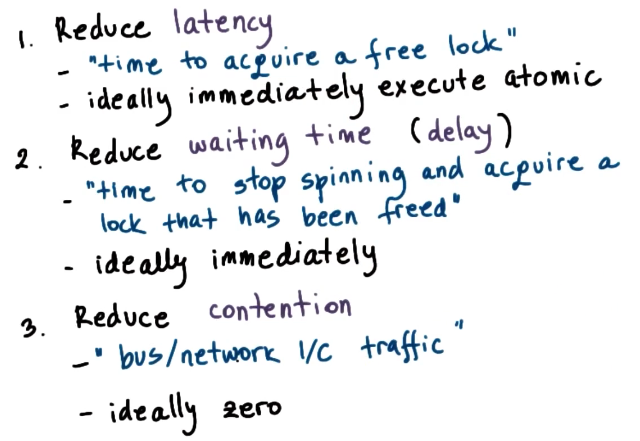 1. Reduce latency
- "time to acquire a free lock"
- ideally immediately execute atomic
2. Reduce waiting time (delay)
- "time to stop spinning and acquire a
lock that has been freed"
- ideally immediately
3. Reduce contention
- "bus/network I/C traffic"
- ideally zero